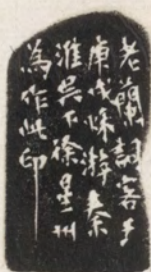 老蘭詞客于
庚戌秌游秦
淮吳下徐星州
為作此印